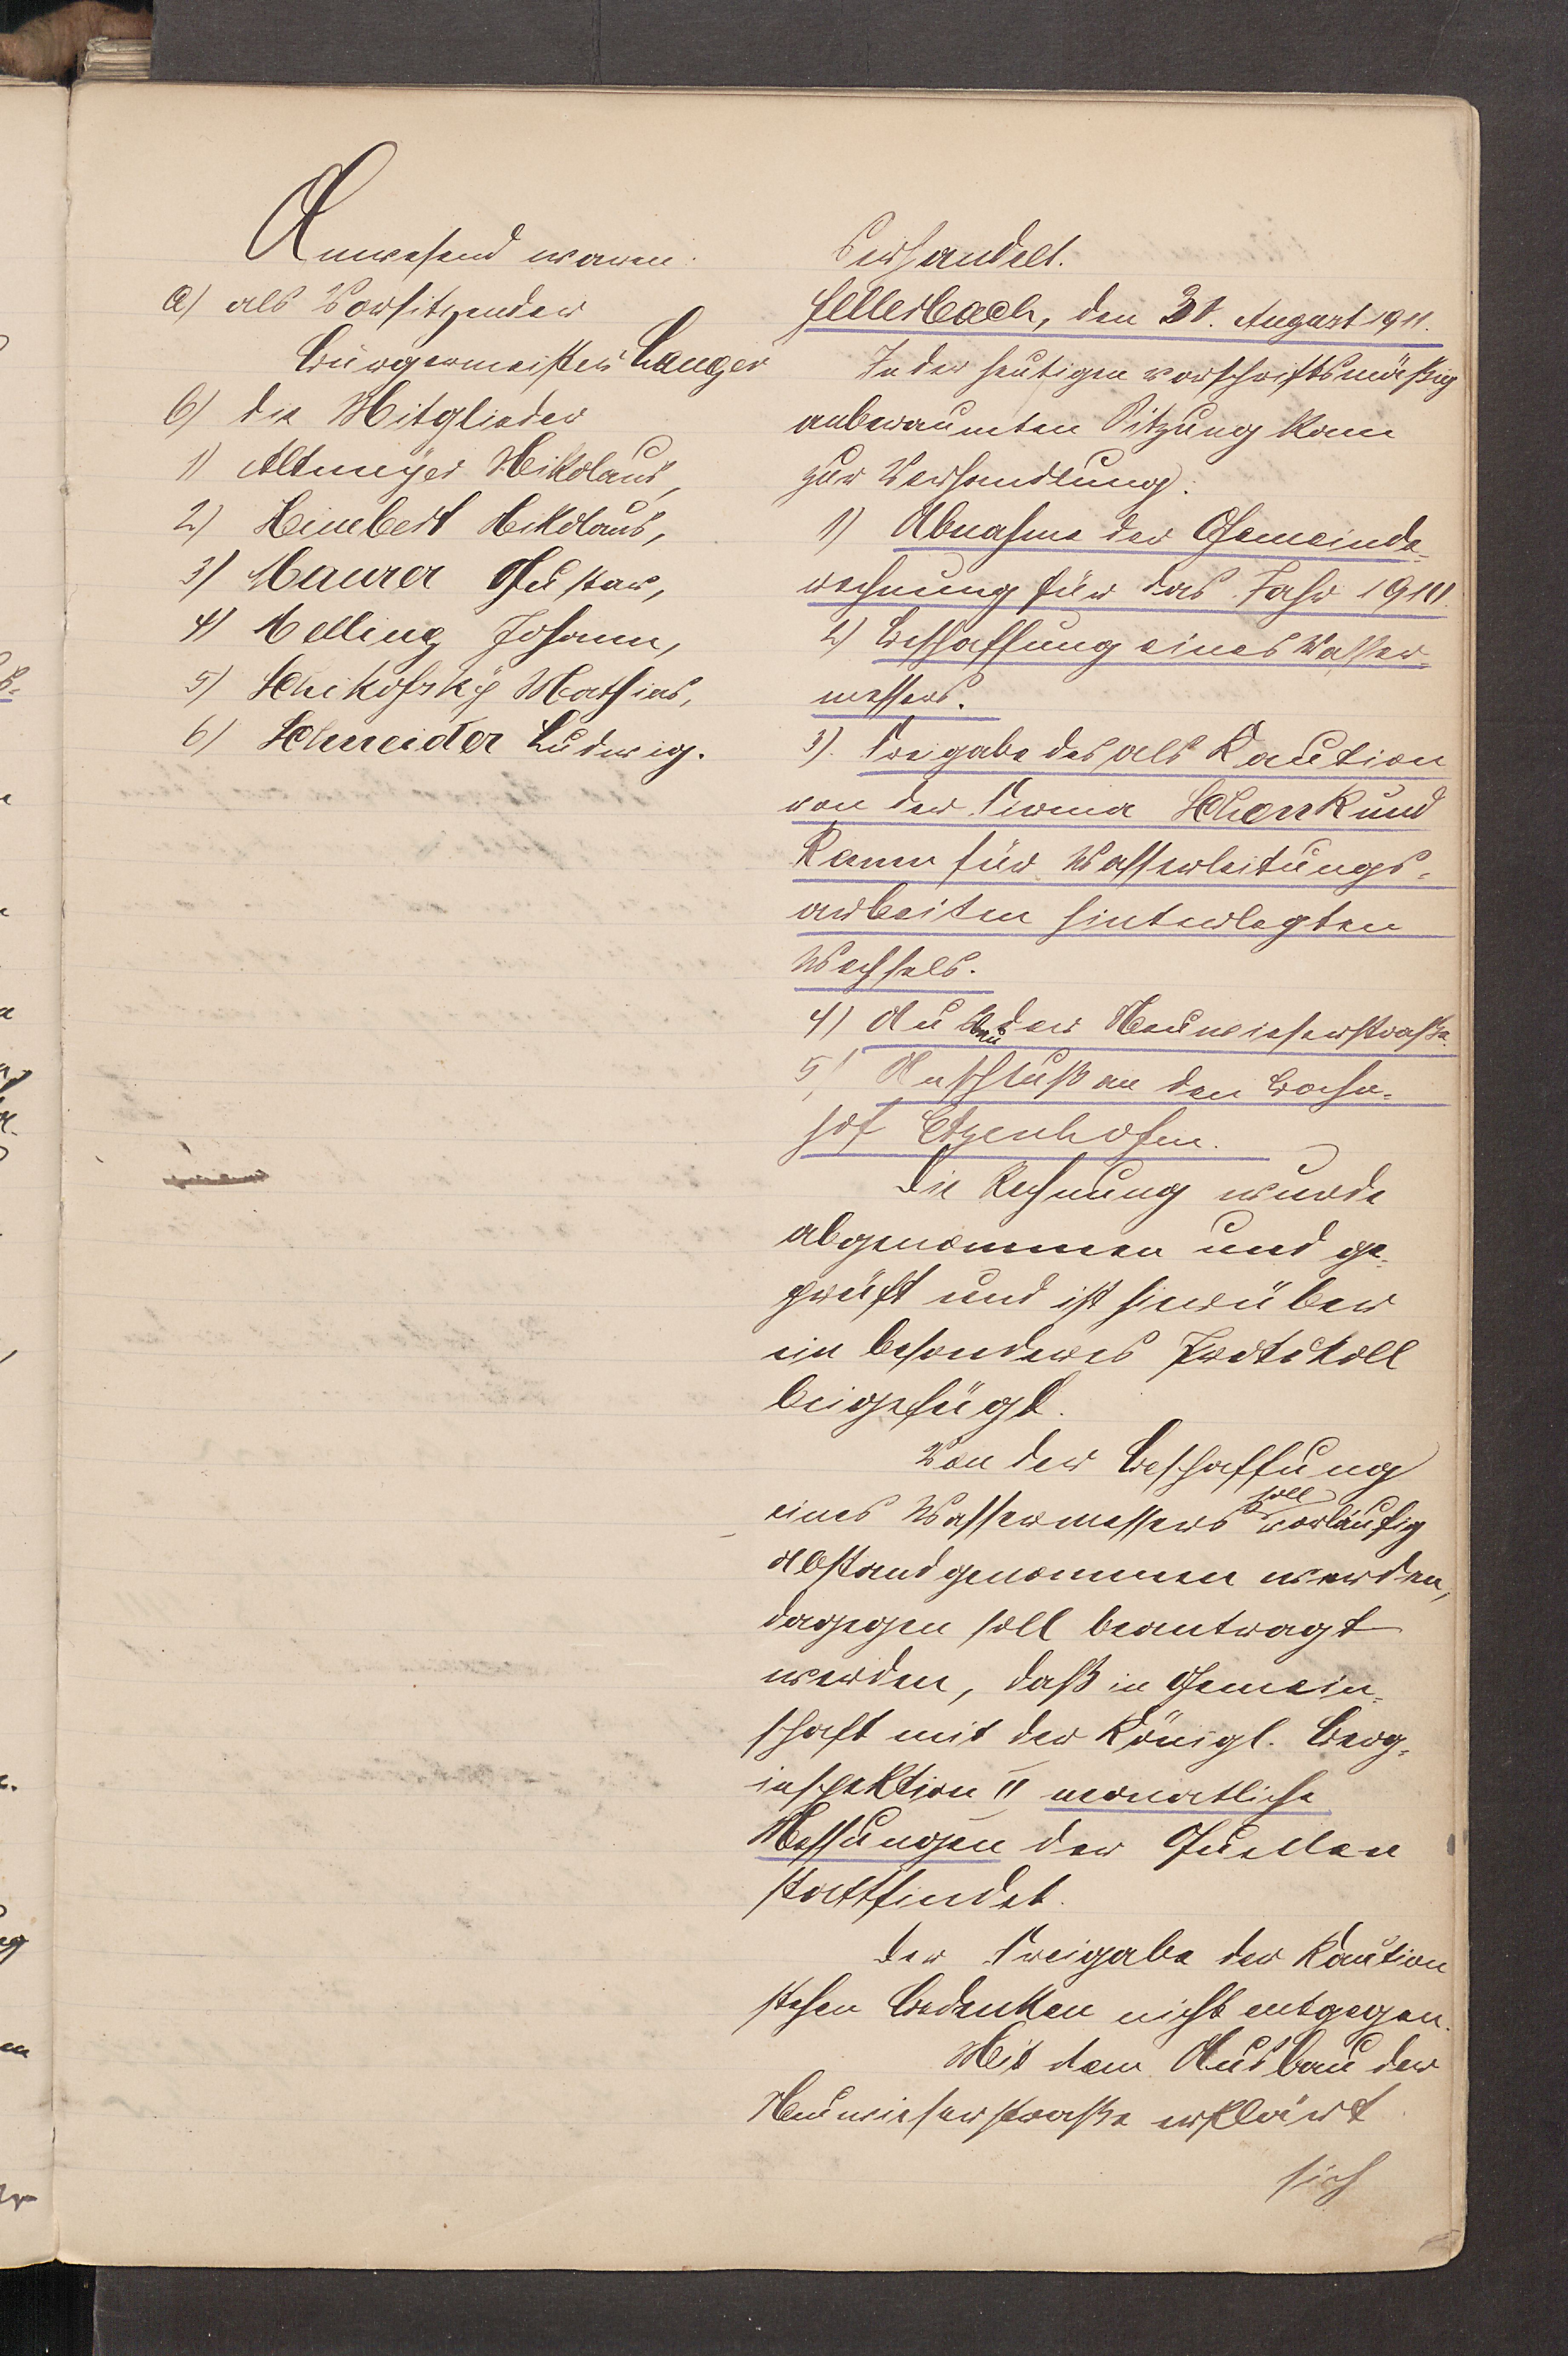 Anwesend waren:
a) als Vorsitzender
Bürgermeister Langer
b) die Mitglieder
1) Altmeyer Nikolaus,
2) Heimbert Nikolaus,
3) Maurer Gustav,
4) Melling Johann,
5) Schikofsky Mathias,
6) Schneider Ludwig.
Verhandelt.
Hellerbach, den 31. August 1911.
In der heutigen vorschriftsmäßig
anberaumten Sitzung kam
zur Verhandlung:
1) Abnahme der Gemeinde-
rechnung für das Jahr 1910.
2) Beschaffung eines Wasser-
messers.
3). Freigabe des als Kaution
von der Firma Schenk und
Kamm für Wasserleitungs-
arbeiten hinterlegten
Wechsels.
4) Ausbau der Neuwieserstraße.
5) Anschluß an den Bahn-
hof Etzenhofen.
Die Rechnung wurde
abgenommen und ge-
prüft und ist hierüber
ein besonderes Protokoll
beigefügt.
Von der Beschaffung
eines Wassermessers soll vorläufig
Abstand genommen werden,
dagegen soll beantragt
werden, daß in Gemein-
schaft mit der Königl. Berg-
inspektion II monatliche
Messungen der Quellen
stattfindet.
Der Freigabe der Kaution
stehen Bedenken nicht entgegen.
Mit dem Ausbau der
Neuwieserstraße erklärt
sich